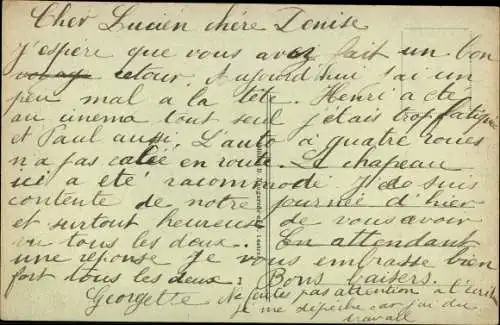 Cher Lucien chère Denise
J'espère que vous avez fait un bon
voyage retour. Aujourd'hui j'ai un
peu mal a la tête. Henri a été
au cinema tout seul j'etais trop fatiguée
et Paul aussi. L'auto a quatre roues
n'a pas calée en route. Le chapeau
ici a été racommodé. Je suis
contente de notre journée d'hier
et surtout heureuse de vous avoir
vu tous les deux. En attendant
une réponse je vous embrasse bien
fort tous les deux. Bons baisers.
Georgette Ne faites pas attention a l'écrit
je me dépêche car j'ai du
travail